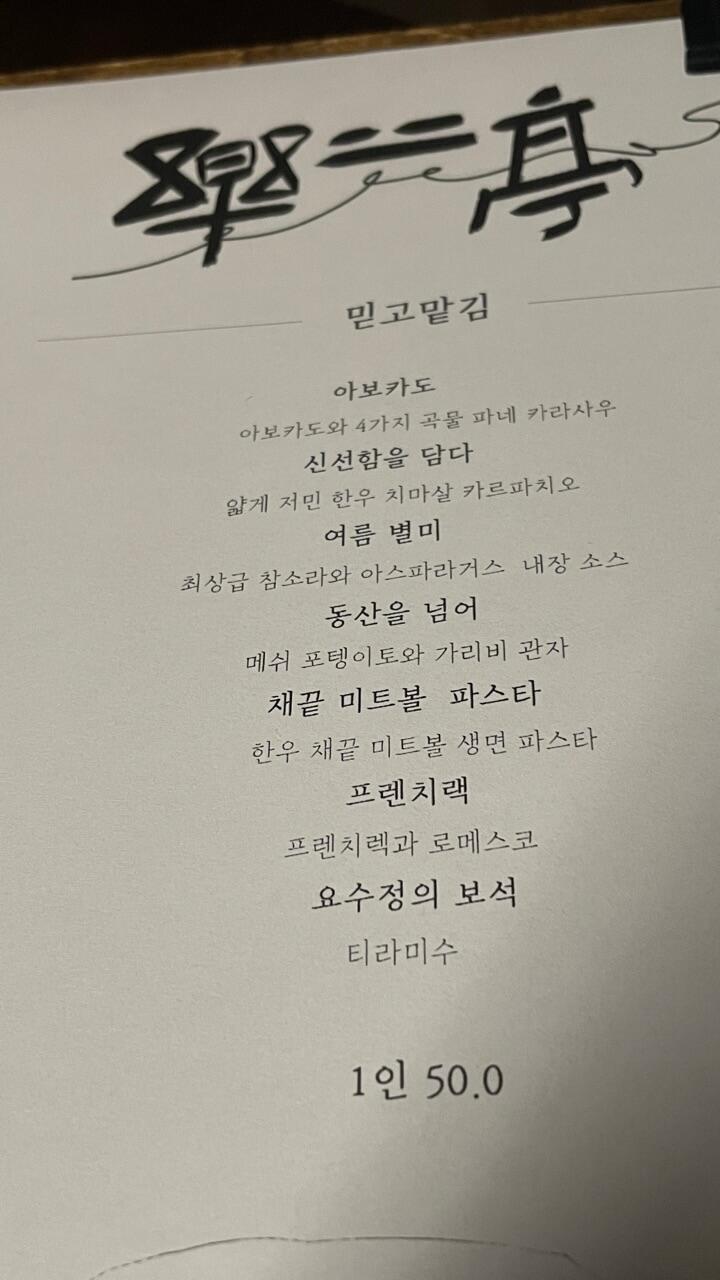 樂 亭
믿고맡김
아보카도
아보카도와 4가지 곡물 파네 카라사우
신선함을 담다
얇게 저민 한우 치마살 카르파치오
여름 별미
최상급 참소라와 아스파라거스 내장 소스
동산을 넘어
메쉬 포텡이토와 가리비 관자
채끝 미트볼 파스타
한우 채끝 미트볼 생면 파스타
프렌치랙
프렌치렉과 로메스코
요수정의 보석
티라미수
1인 50.0